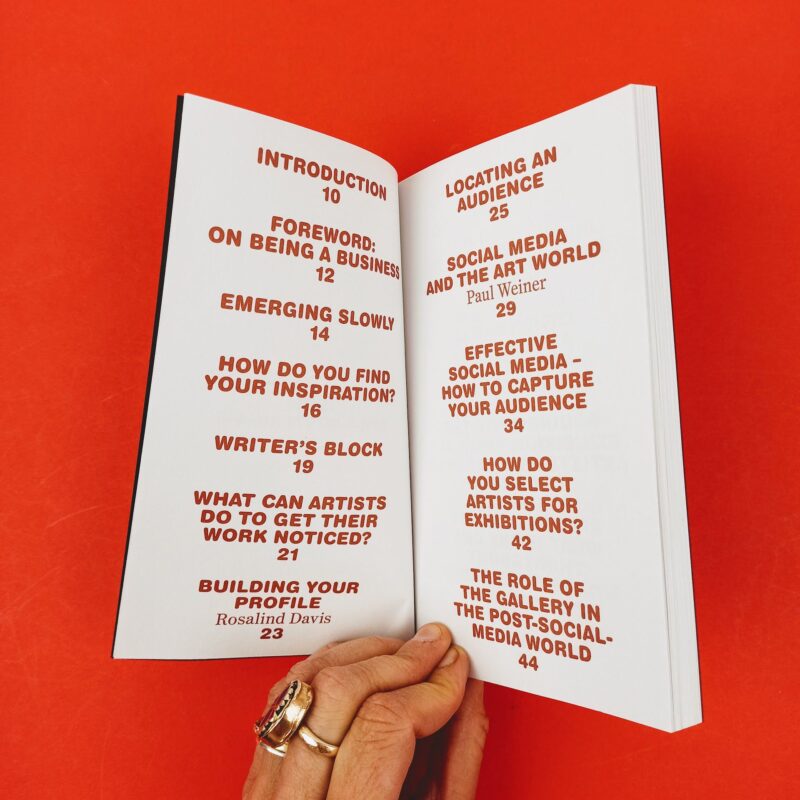 INTRODUCTION
10
FOREWORD:
ON BEING A BUSINESS
12
EMERGING SLOWLY
14
HOW DO YOU FIND
YOUR INSPIRATION?
16
WRITER'S BLOCK
19
WHAT CAN ARTISTS
DO TO GET THEIR
WORK NOTICED?
21
BUILDING YOUR
PROFILE
Rosalind Davis
23
LOCATING AN
AUDIENCE
25
SOCIAL MEDIA
AND THE ART WORLD
Paul Weiner
29
EFFECTIVE
SOCIAL MEDIA –
HOW TO CAPTURE
YOUR AUDIENCE
34
HOW DO
YOU SELECT
ARTISTS FOR
EXHIBITIONS?
42
THE ROLE OF
THE GALLERY IN
THE POST-SOCIAL-
MEDIA WORLD
44